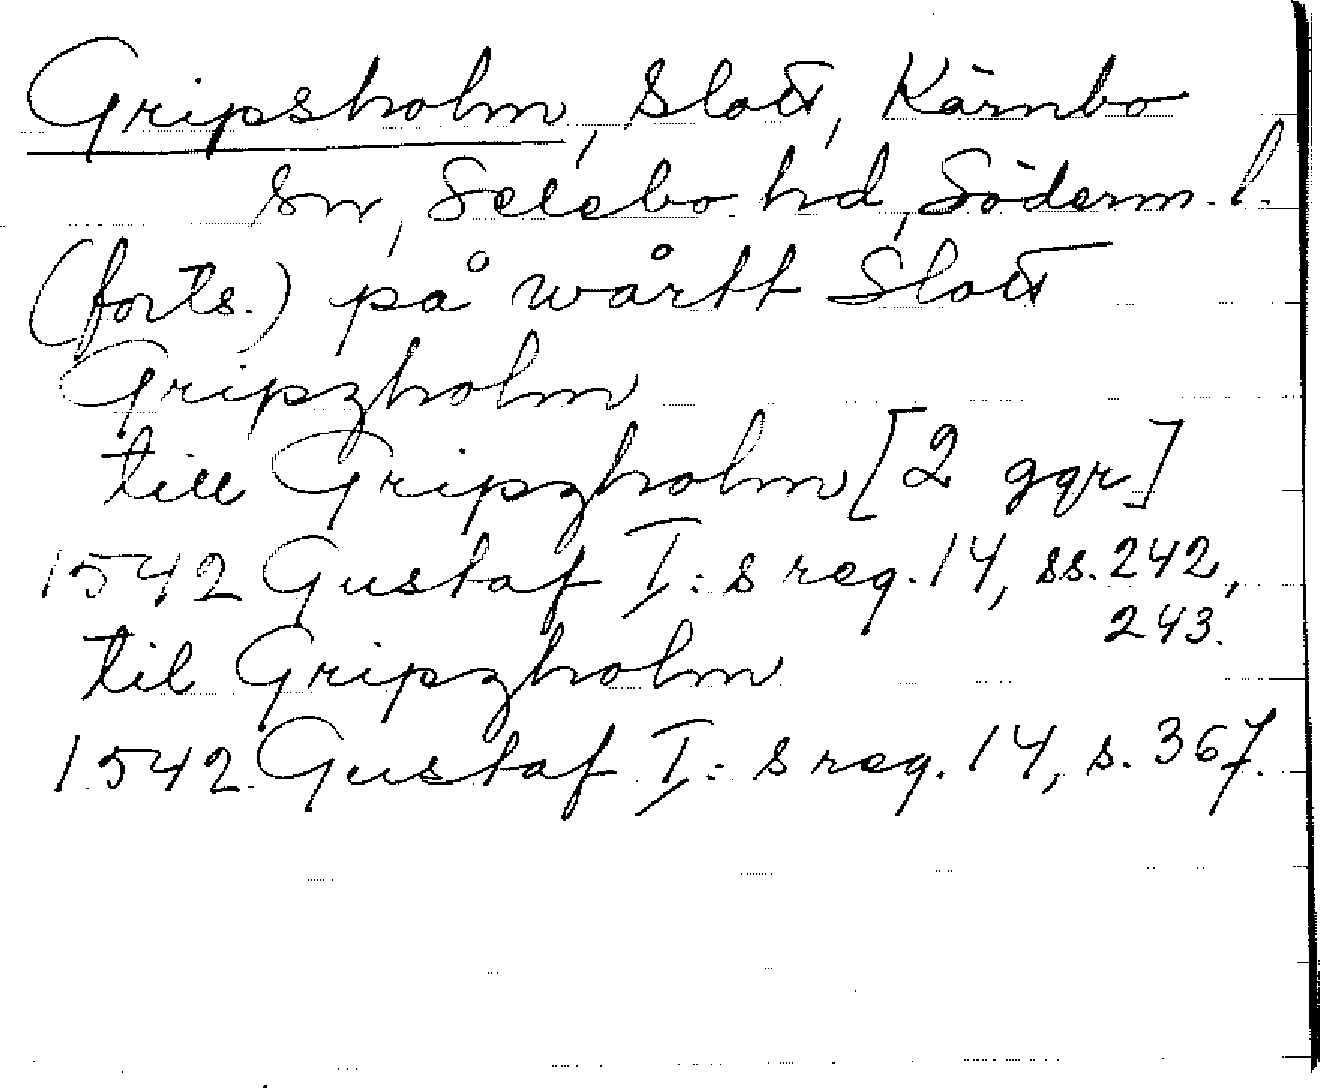 Gripsholm, slott, Kärnbo
sn, Selebo hd, Söderm. l.
(forts.) på wårtt Slott
Gripzholm
till Gripzholm [2 ggr]
1542 Gustaf I:s reg. 14, ss. 242,
243.
til Gripzholm
1542 Gustaf I:s reg. 14, s. 367.